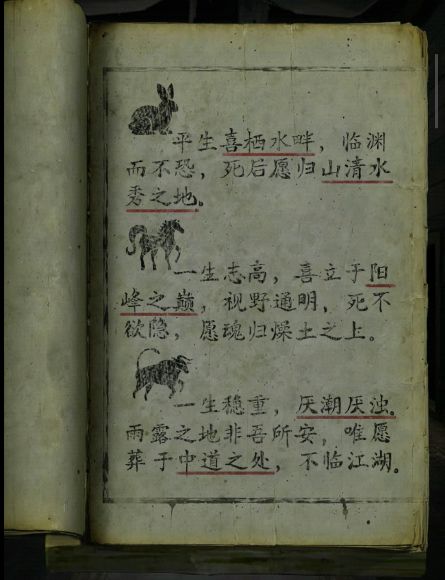 平生喜栖水畔，临渊
而不恐，死后愿归山清水
秀之地。
一生志高，喜立于阳
峰之巅，视野通明，死不
欲隐，愿魂归燥土之上。
一生稳重，厌潮厌浊。
雨露之地非吾所安，唯愿
葬于中道之处，不临江湖。